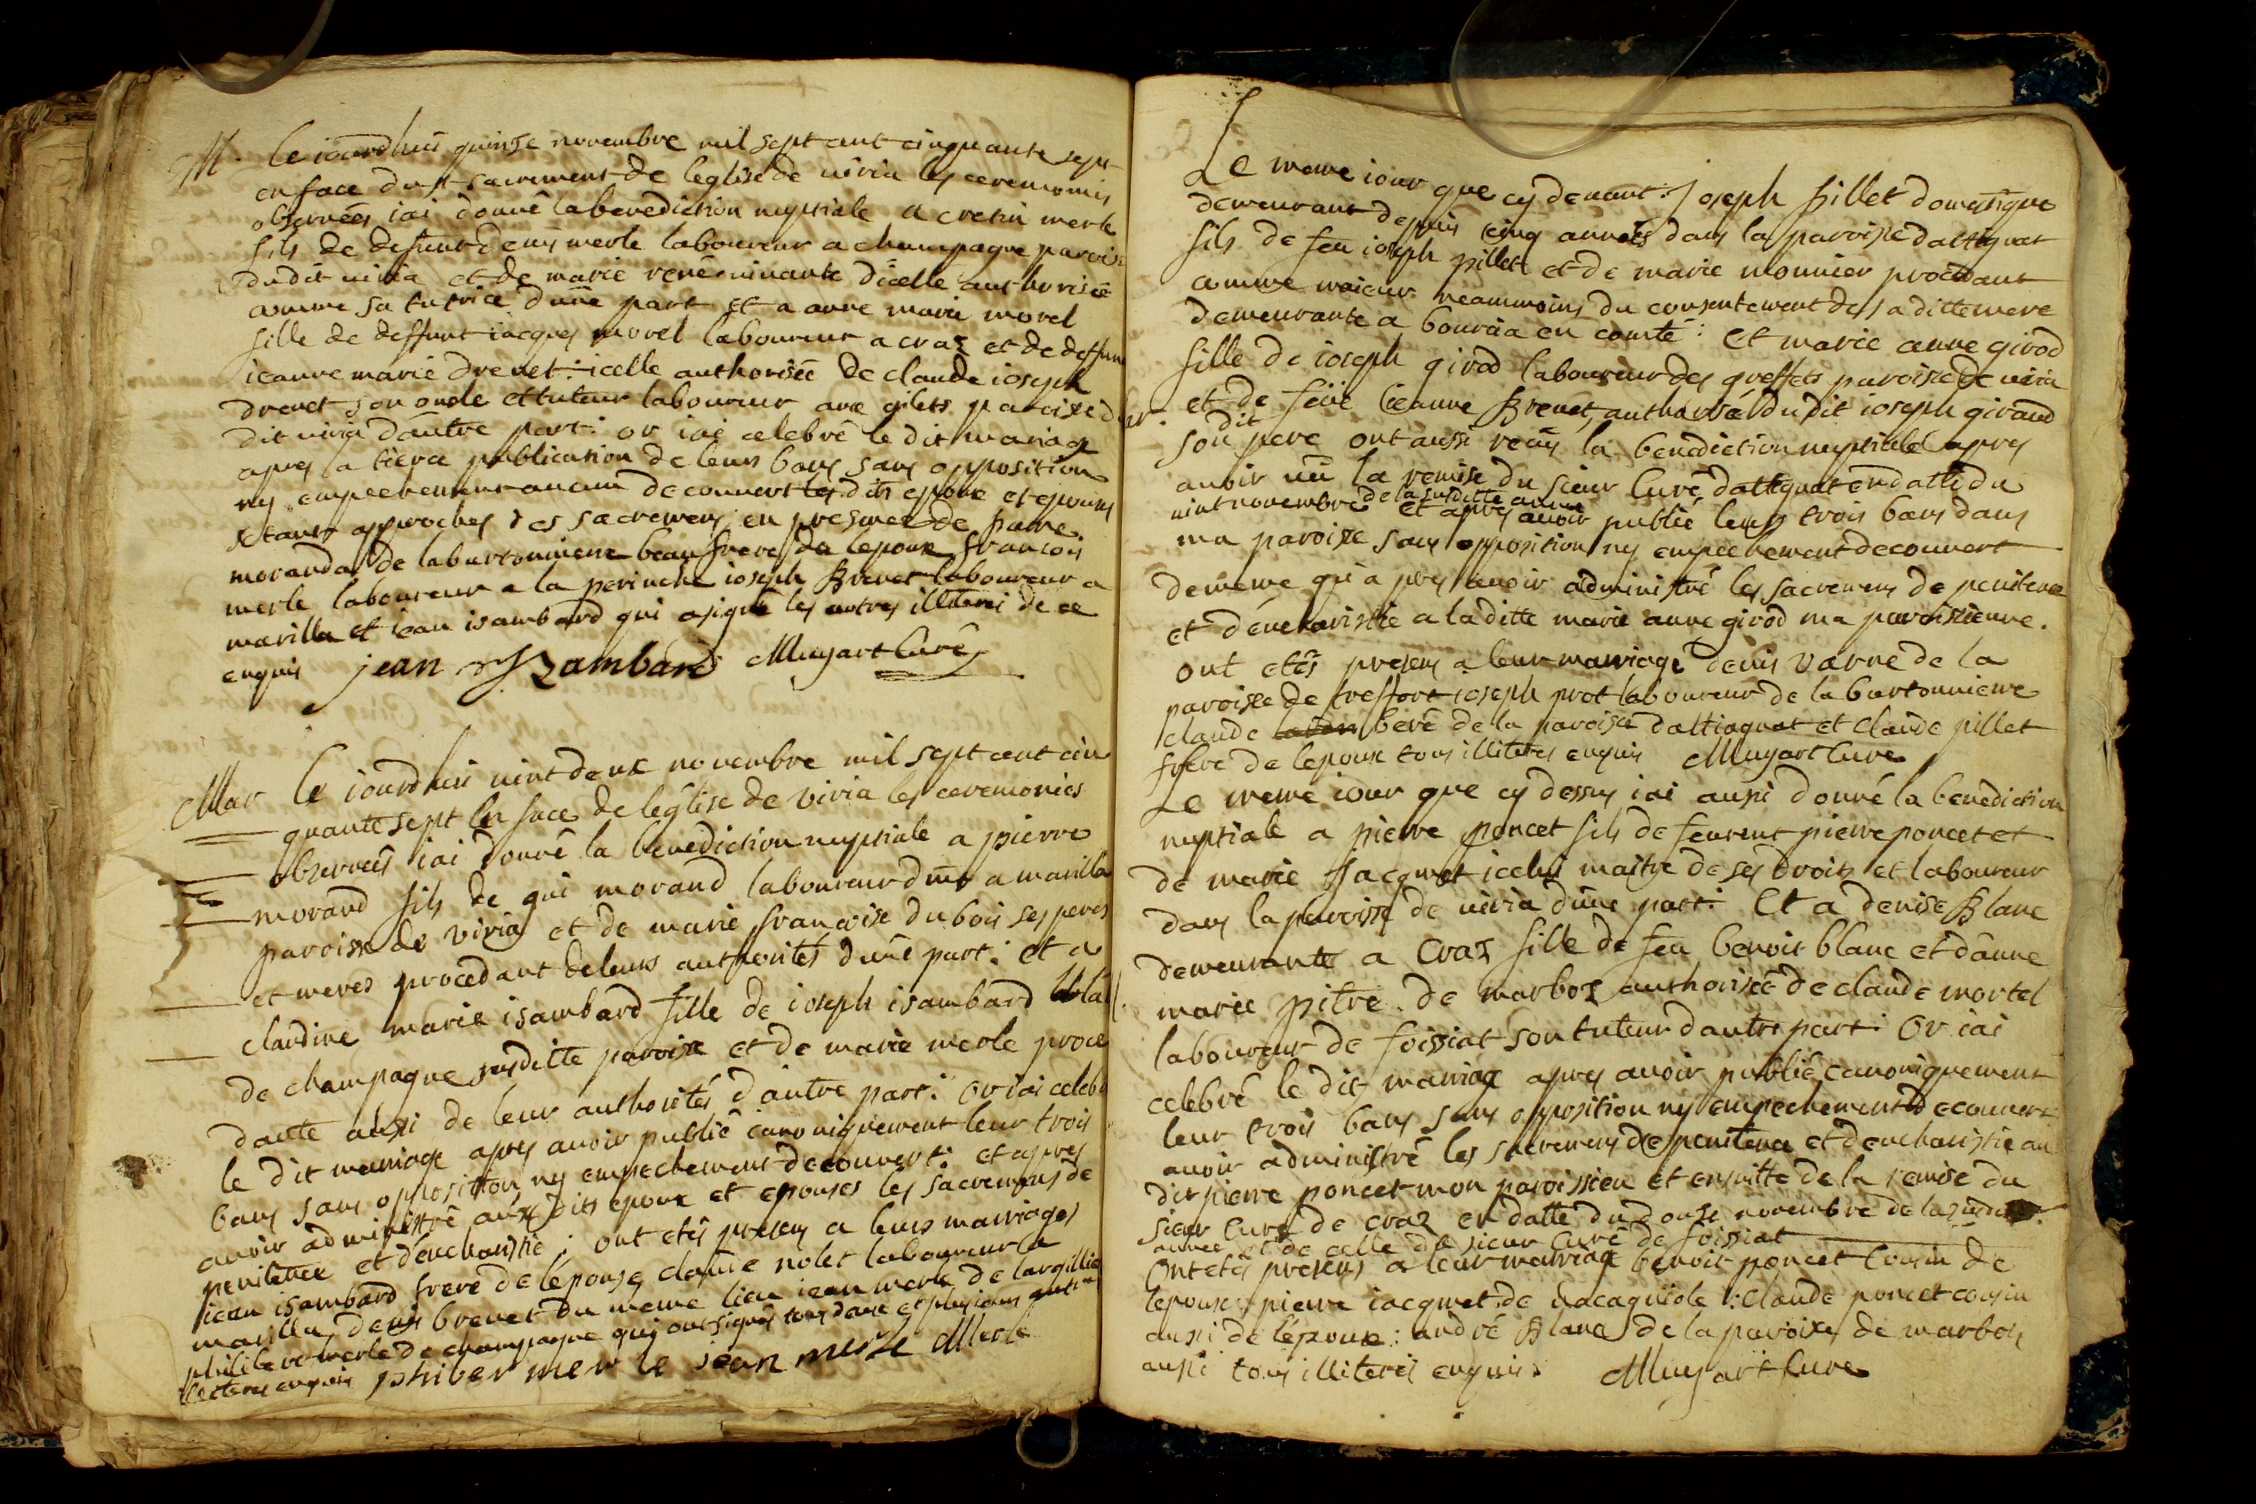 M. Le iourdhui quinse novembre mil sept cent cinquante sept
en face du st sacrement de leglise de uiria les ceremonies
observées iai donné la benediction nuptiale a cretin merle
fils de deffunt denis merle laboureur a champagne paroisse
dudit uiria et de marie renée uiuante dicelle authorisée
comme sa tutrice dune part et a anne marie morel
fille de deffunt iacques morel laboureur a craz et de deffunte
ieanne marie drevet icelle authorisée de claude ioseph
drevet son oncle et tuteur laboureur aux paroisse du
dit uiria dautre part: or iai celebré le dit mariage
apres la tierce publication de leurs bans sans opposition
ny empechement aucun decouvert les dits epoux et epouses
setants approchés des sacremens en presence de
morandas de laburtonniere beaufrere de lepoux francois
merle laboureur a la perinche ioseph Brevet laboureur a
marilla et iean isambard qui a signé les autres illiterés de ce
enquis jean Isambard Muyart Curé
Mar Le iourdhui uint deux novembre mil sept cent cin
quante sept en face de léglise de viria les ceremonies
observées iai donné la benediction nuptiale a pierre
morand fils de gui morand laboureur a marilla
paroisse de viria et de marie francoise dubois ses peres
et meres procedant de leurs authorités dune part: et a
claudine marie isambard fille de ioseph isambard
de champagne susditte paroisse et de marie merle proce
dante aussi de leur authorités d'autre part: or iai celebré
le dit mariage apres auoir publié canoniquement leur trois
bans sans opposition ny empechement decouvert: et apres
auoir administré auxdits epoux et epouses les sacremens de
penitence et déucharistie: ont etés presens a leurs mariages
iean isambard frere de lépouse claude nolet laboureur a
marilla, denis brevet du meme lieu iean merle de largilliere
philibert merle de champagne qui ont signés tous deux et plusieurs autres
illiteres enquis philiber merle jean merle Merle
Le meme iour que cy devant: Joseph pillet domestique
demeurant depuis cinq années dans la paroisse dattignat
fils de feu ioseph pillet et de marie monnier procedant
comme maieur neammoins du consentement de sa ditte mere
demeurante a bourcia en comté: et marie anne girod
fille de ioseph girod laboureur des greffets paroisse de uiria
et de feüe ieanne Brevet, authorisée du dit ioseph giraud
son dit pere ont aussi reçus la benediction nuptiale apres
auoir uü la remise du sieur Curé dattignat en datte du
uint novembre de la susditte année et apres auoir publié leurs trois bans dans
ma paroisse sans opposition ny empechement decouvert
de meme qu'apres auoir administré les sacremens de penitence
et déucharistie a laditte marie anne girod ma paroissienne.
ont etés presens a leur mariage denis varne de la
paroisse de treffort ioseph prot laboureur de la burtonniere
claude beré de la paroisse dattignat et claude pillet
frere de lepoux tous illiteres enquis Muyart Curé
Le meme iour que cy dessus iai aussi donné la benediction
nuptiale a pierre poncet fils de feu pierre poncet et
de marie Jacquet icelui maitre de ses droits et laboureur
dans la paroisse de uiria dune part: Et a denise Blanc
demeurante a Craz fille de feu benoit blanc et d'anne
marie pitre de marboz authorisée de claude mortel
laboureur de foissiat son tuteur dautre part: Or iai
celebré le dit mariage apres auoir publié canoniquement
leur trois bans sans opposition ny empechement decouvert
auoir administré les sacremens de penitence et deucharistie au
dit pierre poncet mon paroissien et ensuitte de la remise du
sieur Curé de craz en datte du douse novembre de la susditte
année et de celle du sieur Curé de foissiat
Ont etés presens a leur mariage benoit poncet Cousin de
lepoux, pierre iacquet de : Claude poncet cousin
aussi de lépoux: andré Blanc de la paroisse de marbos
aussi tous illiterés enquis. Muyart Curé